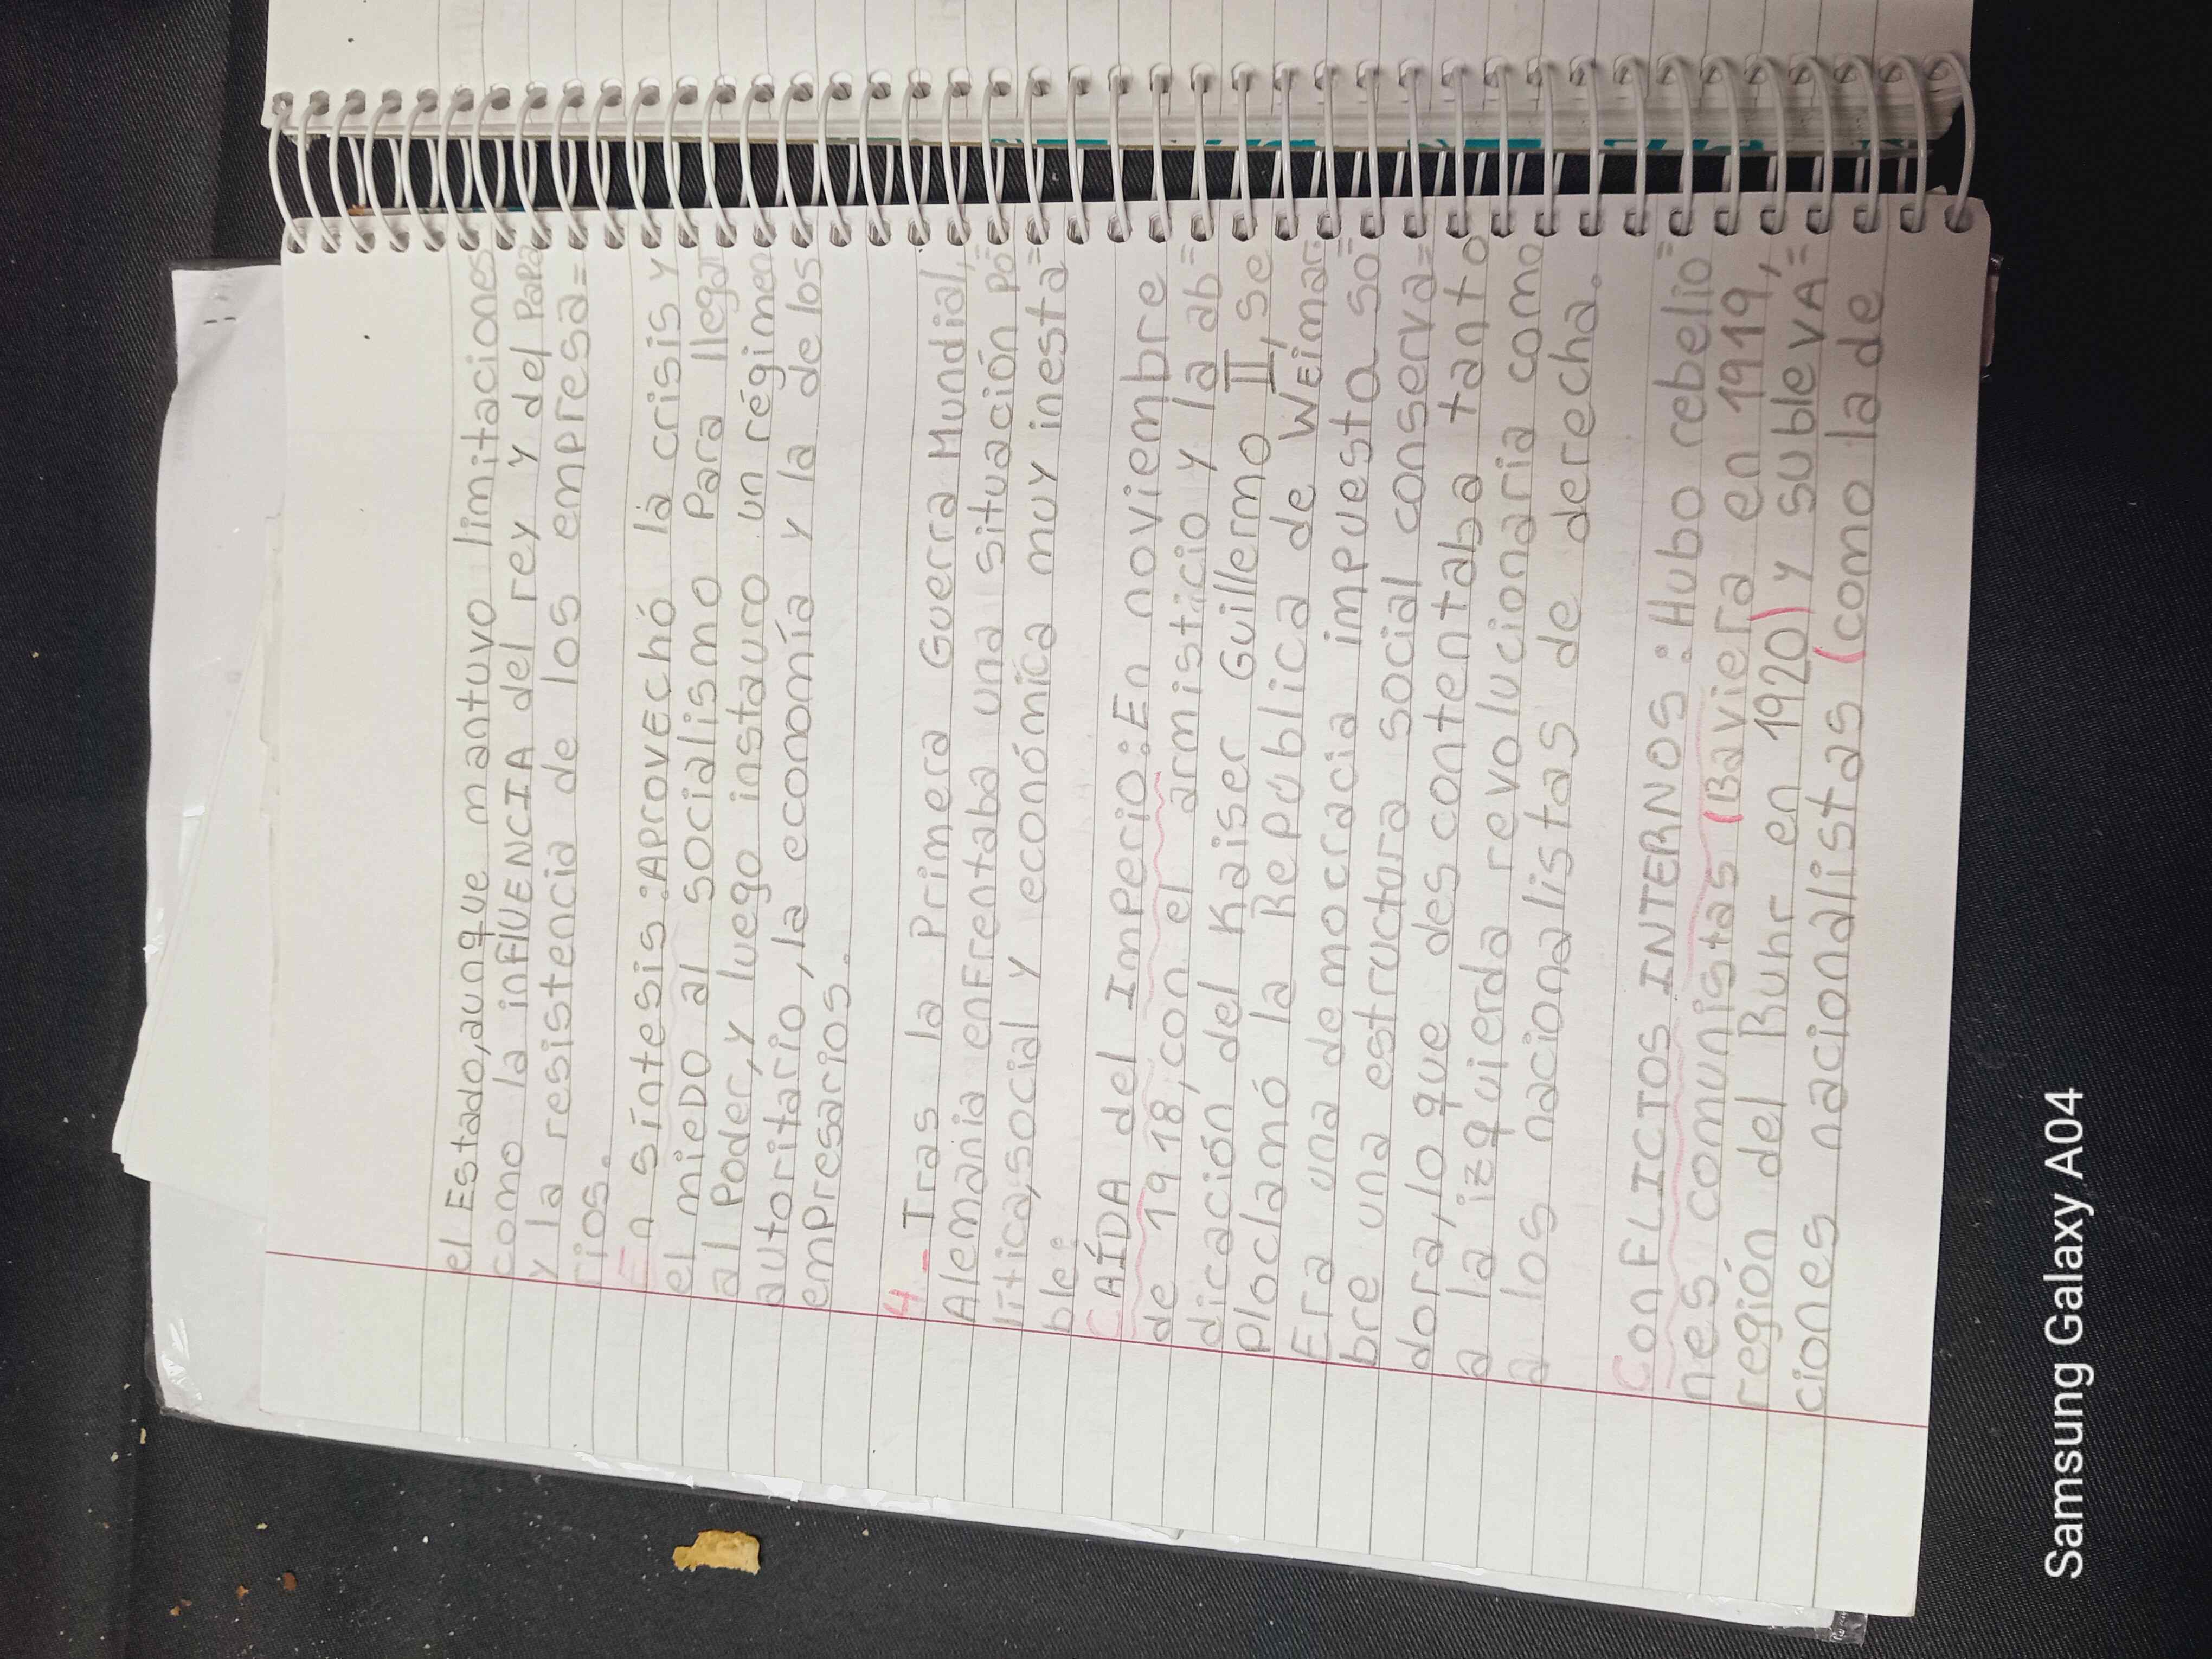 el Estado, aunque mantuvo limitaciones
como la inFlUENCIA del rey y del Papa
y la resistencia de los empresa=
rios.
En síntesis: APROVEchó la crisis y
el mieDO al socialismo Para llegar
al Poder, y luego instauro un régimen
autoritario, la economía y la de los
emPresarios.
4_ Tras la Primera Guerra Mundial,
Alemania enFrentaba una situación Po=
lítica, social y económica muy inesta=
ble:
CAÍDA del ImPerio: En noviembre
de 1918, con el armisticio y la ab=
dicación del Kaiser Guillermo II, se
Ploclamó la RePública de WEimar.
Era una democracia imPuesta so=
bre una estructura social conserva=
dora, lo que descontentaba tanto
a la izquierda revolucionaria como
a los nacionalistas de derecha.
ConFLICTOS INTERNOS: Hubo rebelio=
nes comunistas (Baviera en 1919,
región del Buhr en 1920) y subleVA=
ciones nacionalistas (como la de
Samsung Galaxy A04